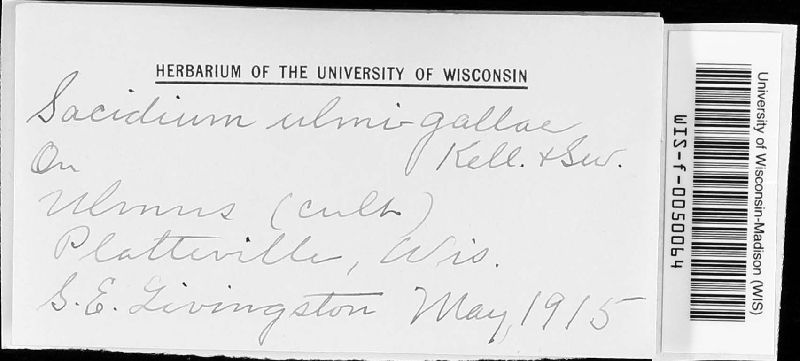 HERBARIUM OF THE UNIVERSITY OF WISCONSIN
Sacidium ulmi-gallae
Kell. & Sw.
On
Ulmus (cult.)
Platteville, Wis.
G. E. Livingston May, 1915
University of Wisconsin-Madison (WIS)
WIS-f-0050064